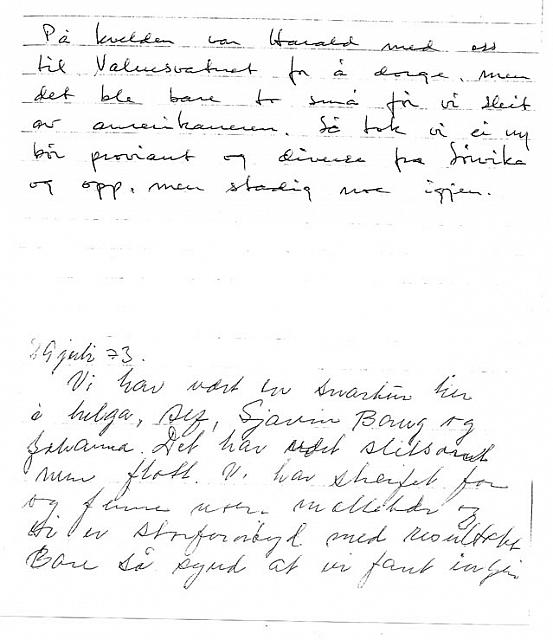 På kvelden var Harald med oss
til Valnesvatnet for å dorge, men
det ble bare to små før vi sleit
av amerikaneren. Så tok vi ei ny
bør proviant og diverse fra Sørvika
og opp, men stadig noe igjen.
29 juli 73.
Vi har vært en snartur her
i helga,
og
Johanna. Det har vært slitsomt
men flott. Vi har
for
og finne noen
og
med resultat
Bare så synd at vi fant ingen